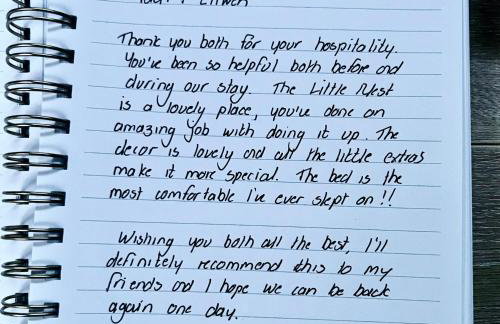 Thank you both for your hospitality.
You've been so helpful both before and
during our stay. The Little Nest
is a lovely place, you've done an
amazing job with doing it up. The
decor is lovely and all the little extras
make it more special. The bed is the
most comfortable I've ever slept on!!
Wishing you both all the best, I'll
definitely recommend this to my
friends and I hope we can be back
again one day.